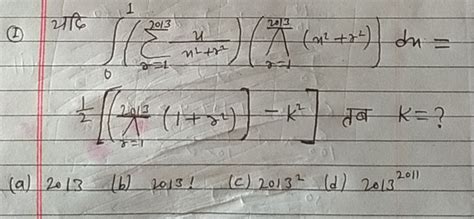 ① यदि ∫₀¹ (∑_{r=1}^{2013} x/(x²+r²)) (∏_{r=1}^{2013} (x²+r²)) dx =
1/2 [(∏_{r=1}^{2013} (1+r²)) − k²] तब K=?
(a) 2013 (b) 2013! (c) 2013² (d) 2013²⁰¹¹